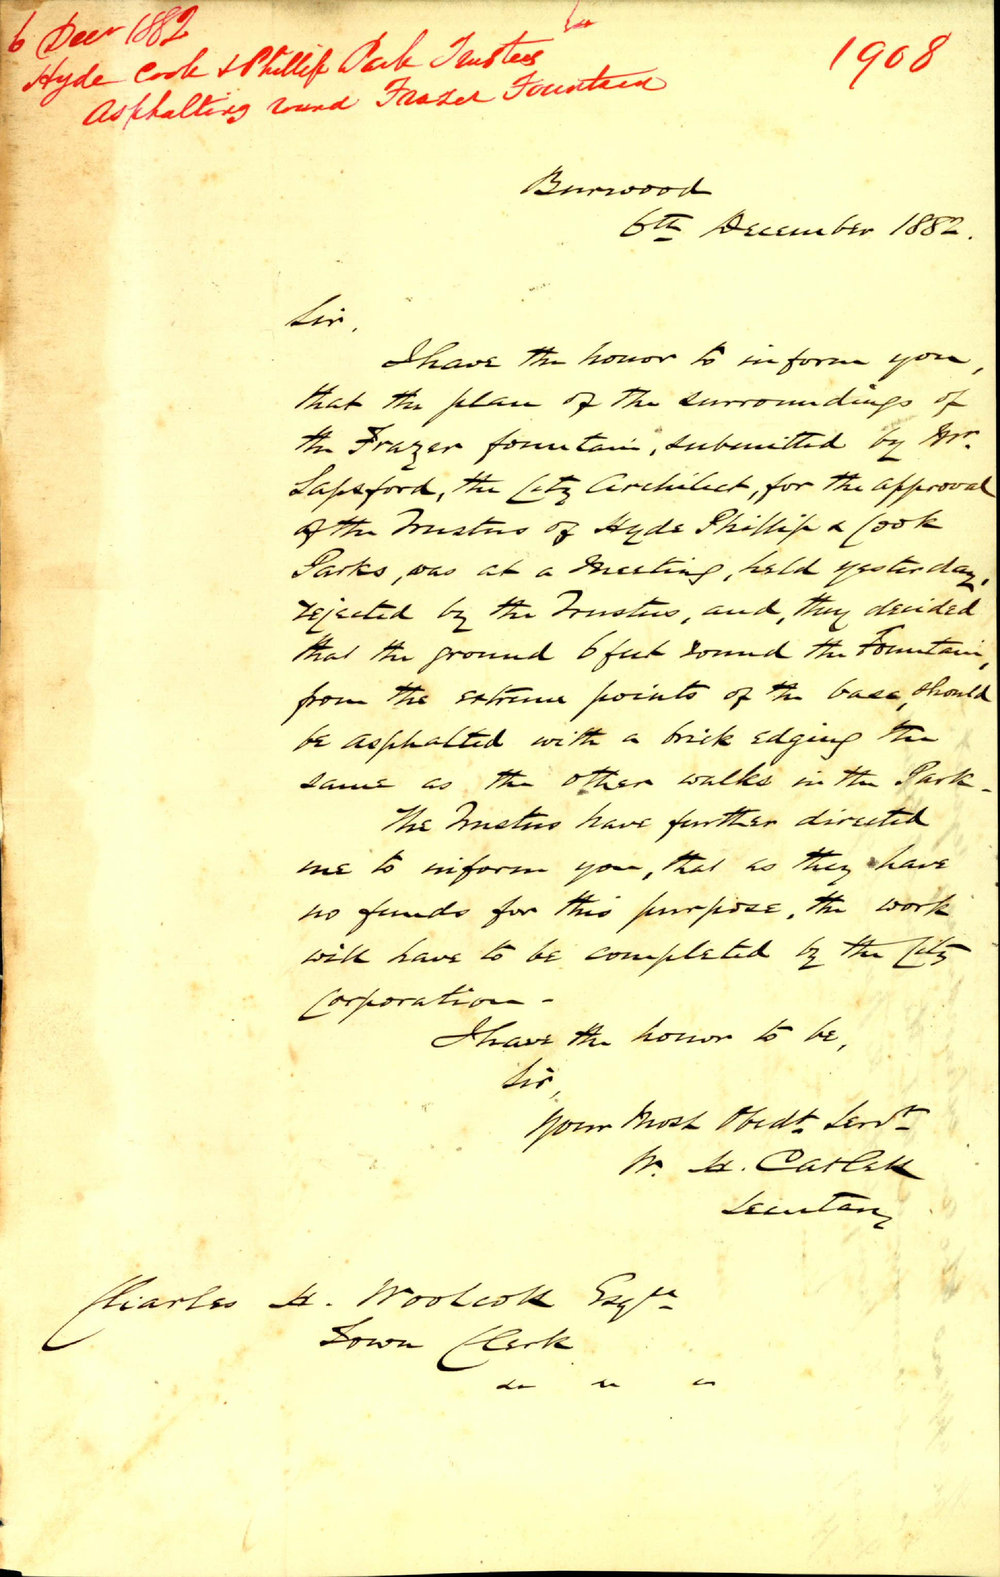 6 Decr 1882
Hyde Cook & Phillip Park Trustees
Asphalting round Frazer Fountain
1908
Burwood
6th December 1882.
Sir,
I have the honor to inform you,
that the plan of the surroundings of
the Frazer fountain, submitted by Mr.
Sapsford, the City Architect, for the approval
of the Trustees of Hyde Phillip & Cook
Parks, was at a Meeting, held yesterday,
rejected by the Trustees, and, they decided
that the ground 6 feet round the Fountain,
from the extreme points of the base, should
be asphalted with a brick edging the
same as the other walks in the Park -
The Trustees have further directed
me to inform you, that as they have
no funds for this purpose, the work
will have to be completed by the City
Corporation -
I have the honor to be,
Sir,
Your Most Obedt. Servt
W. H. Catlett
Secretary
Charles H. Woolcott Esqre
Town Clerk